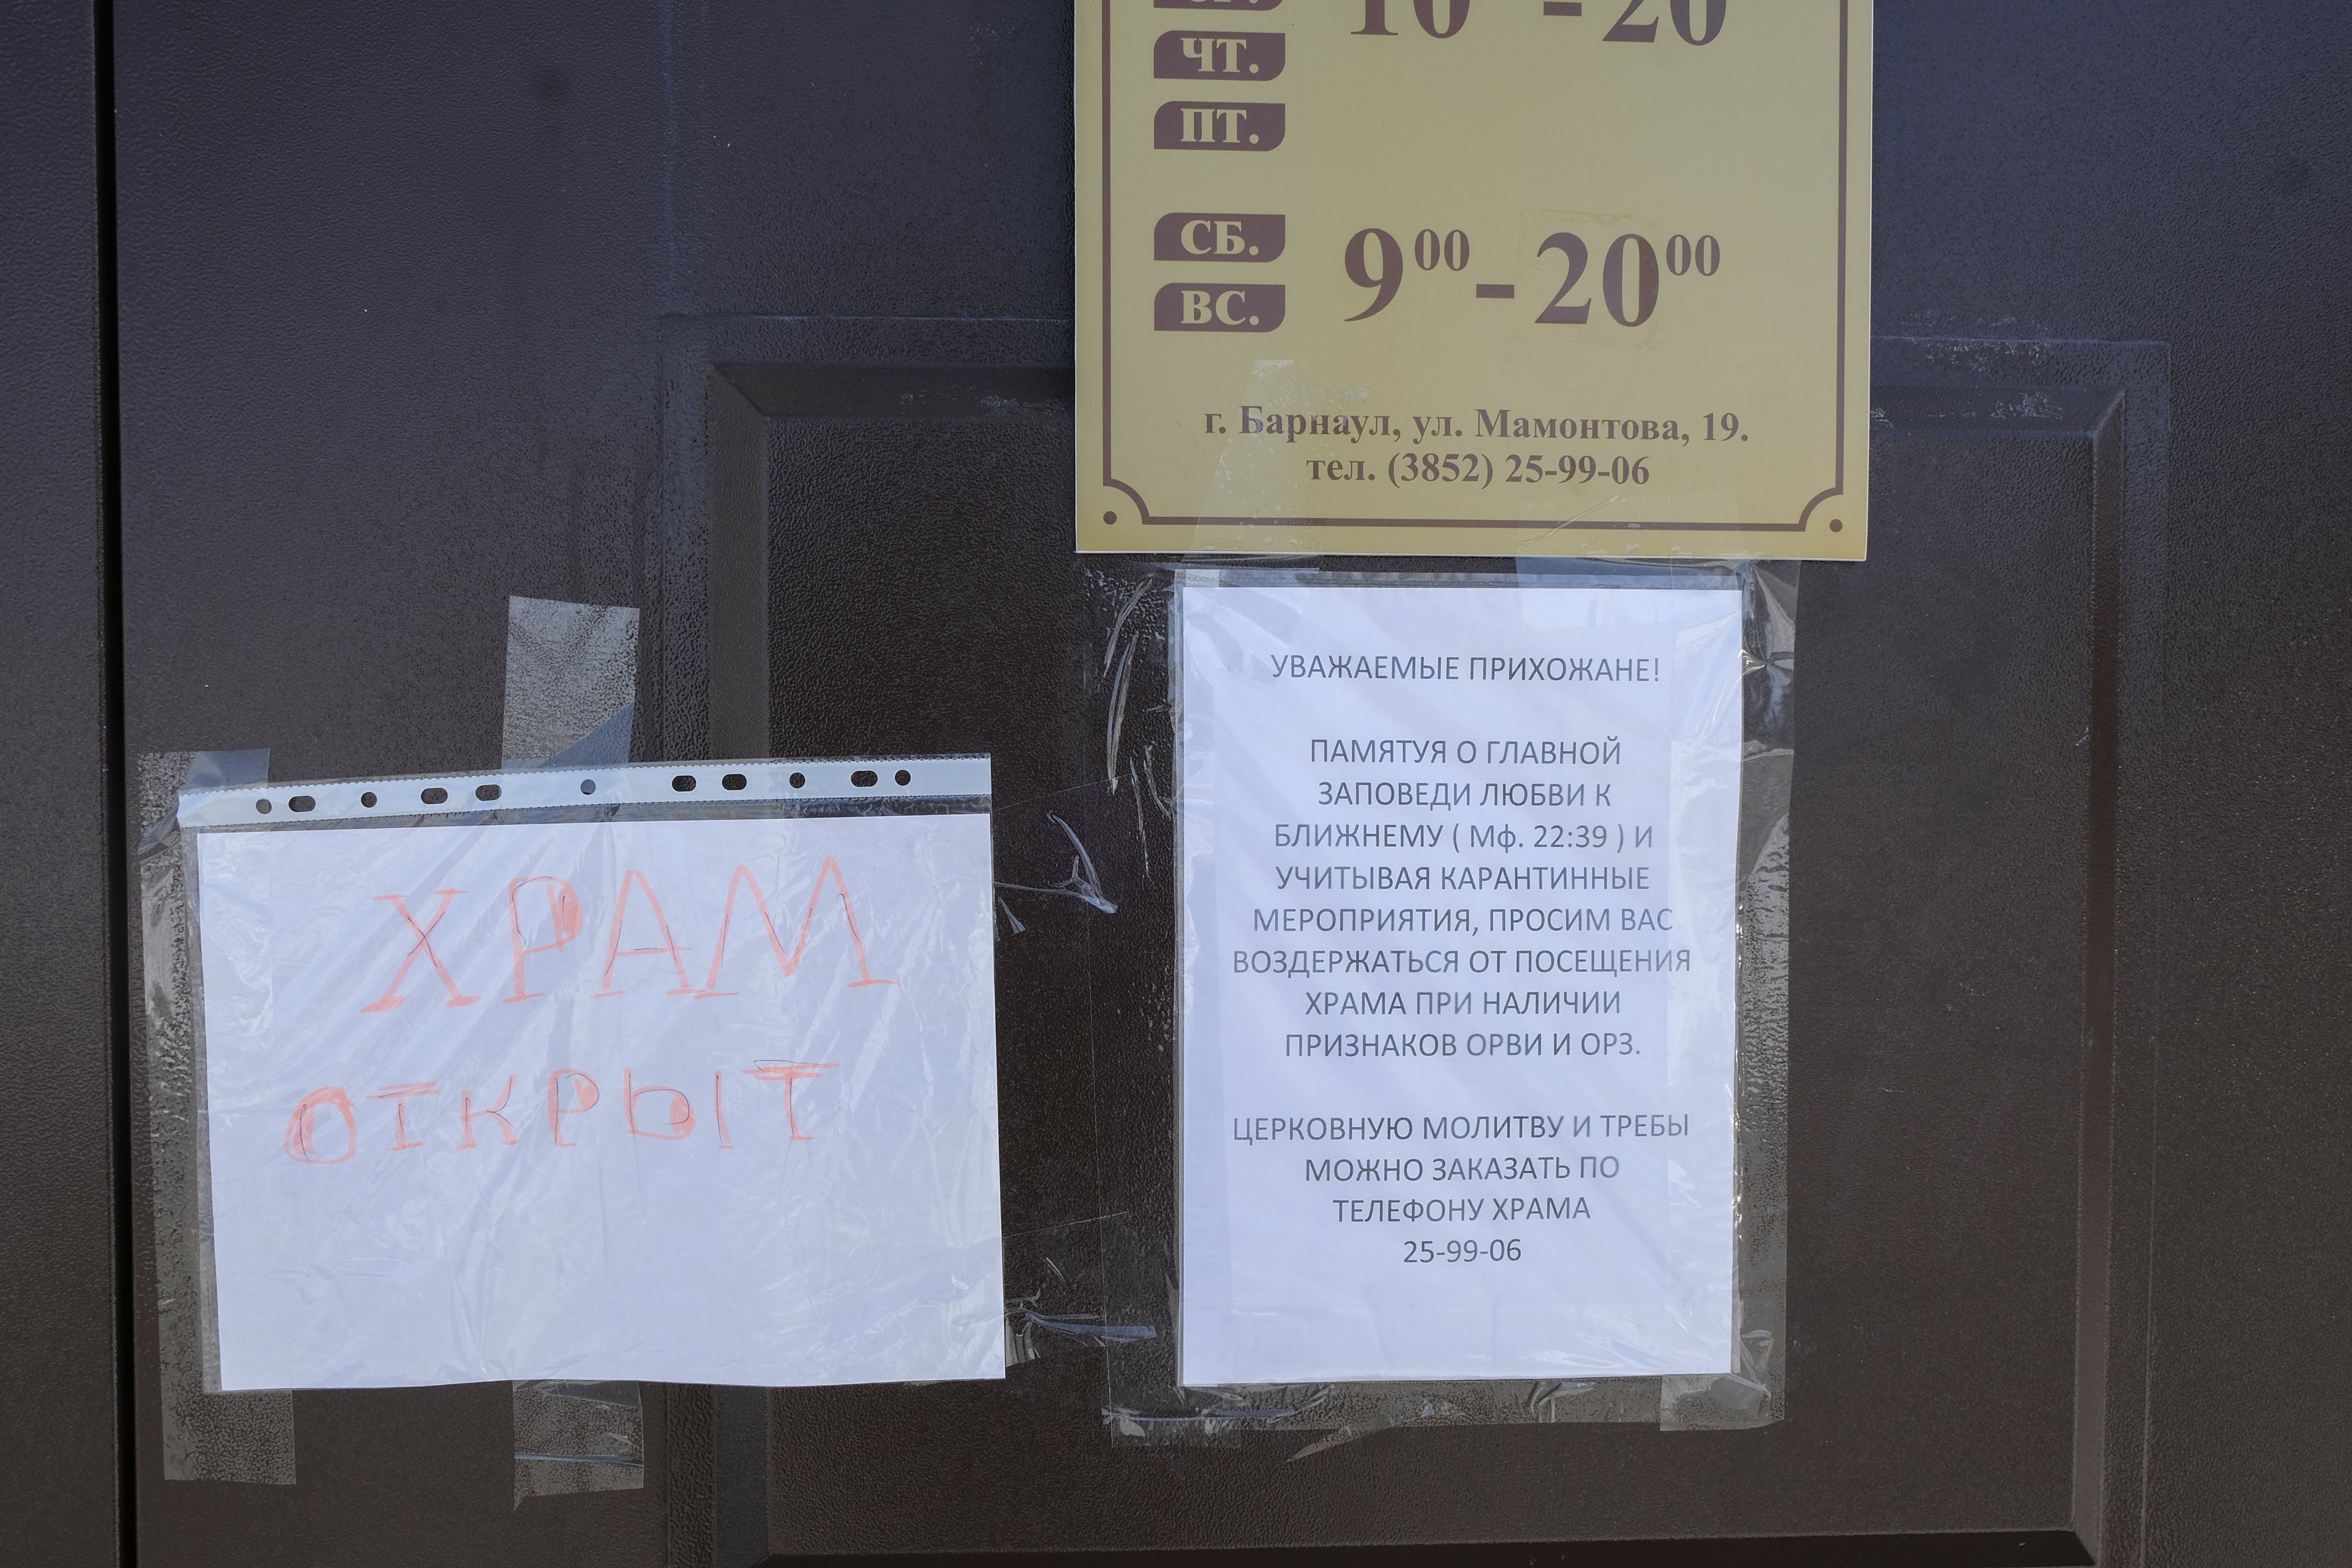 ЧТ.
ПТ.
СБ.
ВС.
9⁰⁰-20⁰⁰
г. Барнаул, ул. Мамонтова, 19.
тел. (3852) 25-99-06
ХРАМ
ОТКРЫТ
УВАЖАЕМЫЕ ПРИХОЖАНЕ!
ПАМЯТУЯ О ГЛАВНОЙ
ЗАПОВЕДИ ЛЮБВИ К
БЛИЖНЕМУ ( Мф. 22:39 ) И
УЧИТЫВАЯ КАРАНТИННЫЕ
МЕРОПРИЯТИЯ, ПРОСИМ ВАС
ВОЗДЕРЖАТЬСЯ ОТ ПОСЕЩЕНИЯ
ХРАМА ПРИ НАЛИЧИИ
ПРИЗНАКОВ ОРВИ И ОРЗ.
ЦЕРКОВНУЮ МОЛИТВУ И ТРЕБЫ
МОЖНО ЗАКАЗАТЬ ПО
ТЕЛЕФОНУ ХРАМА
25-99-06